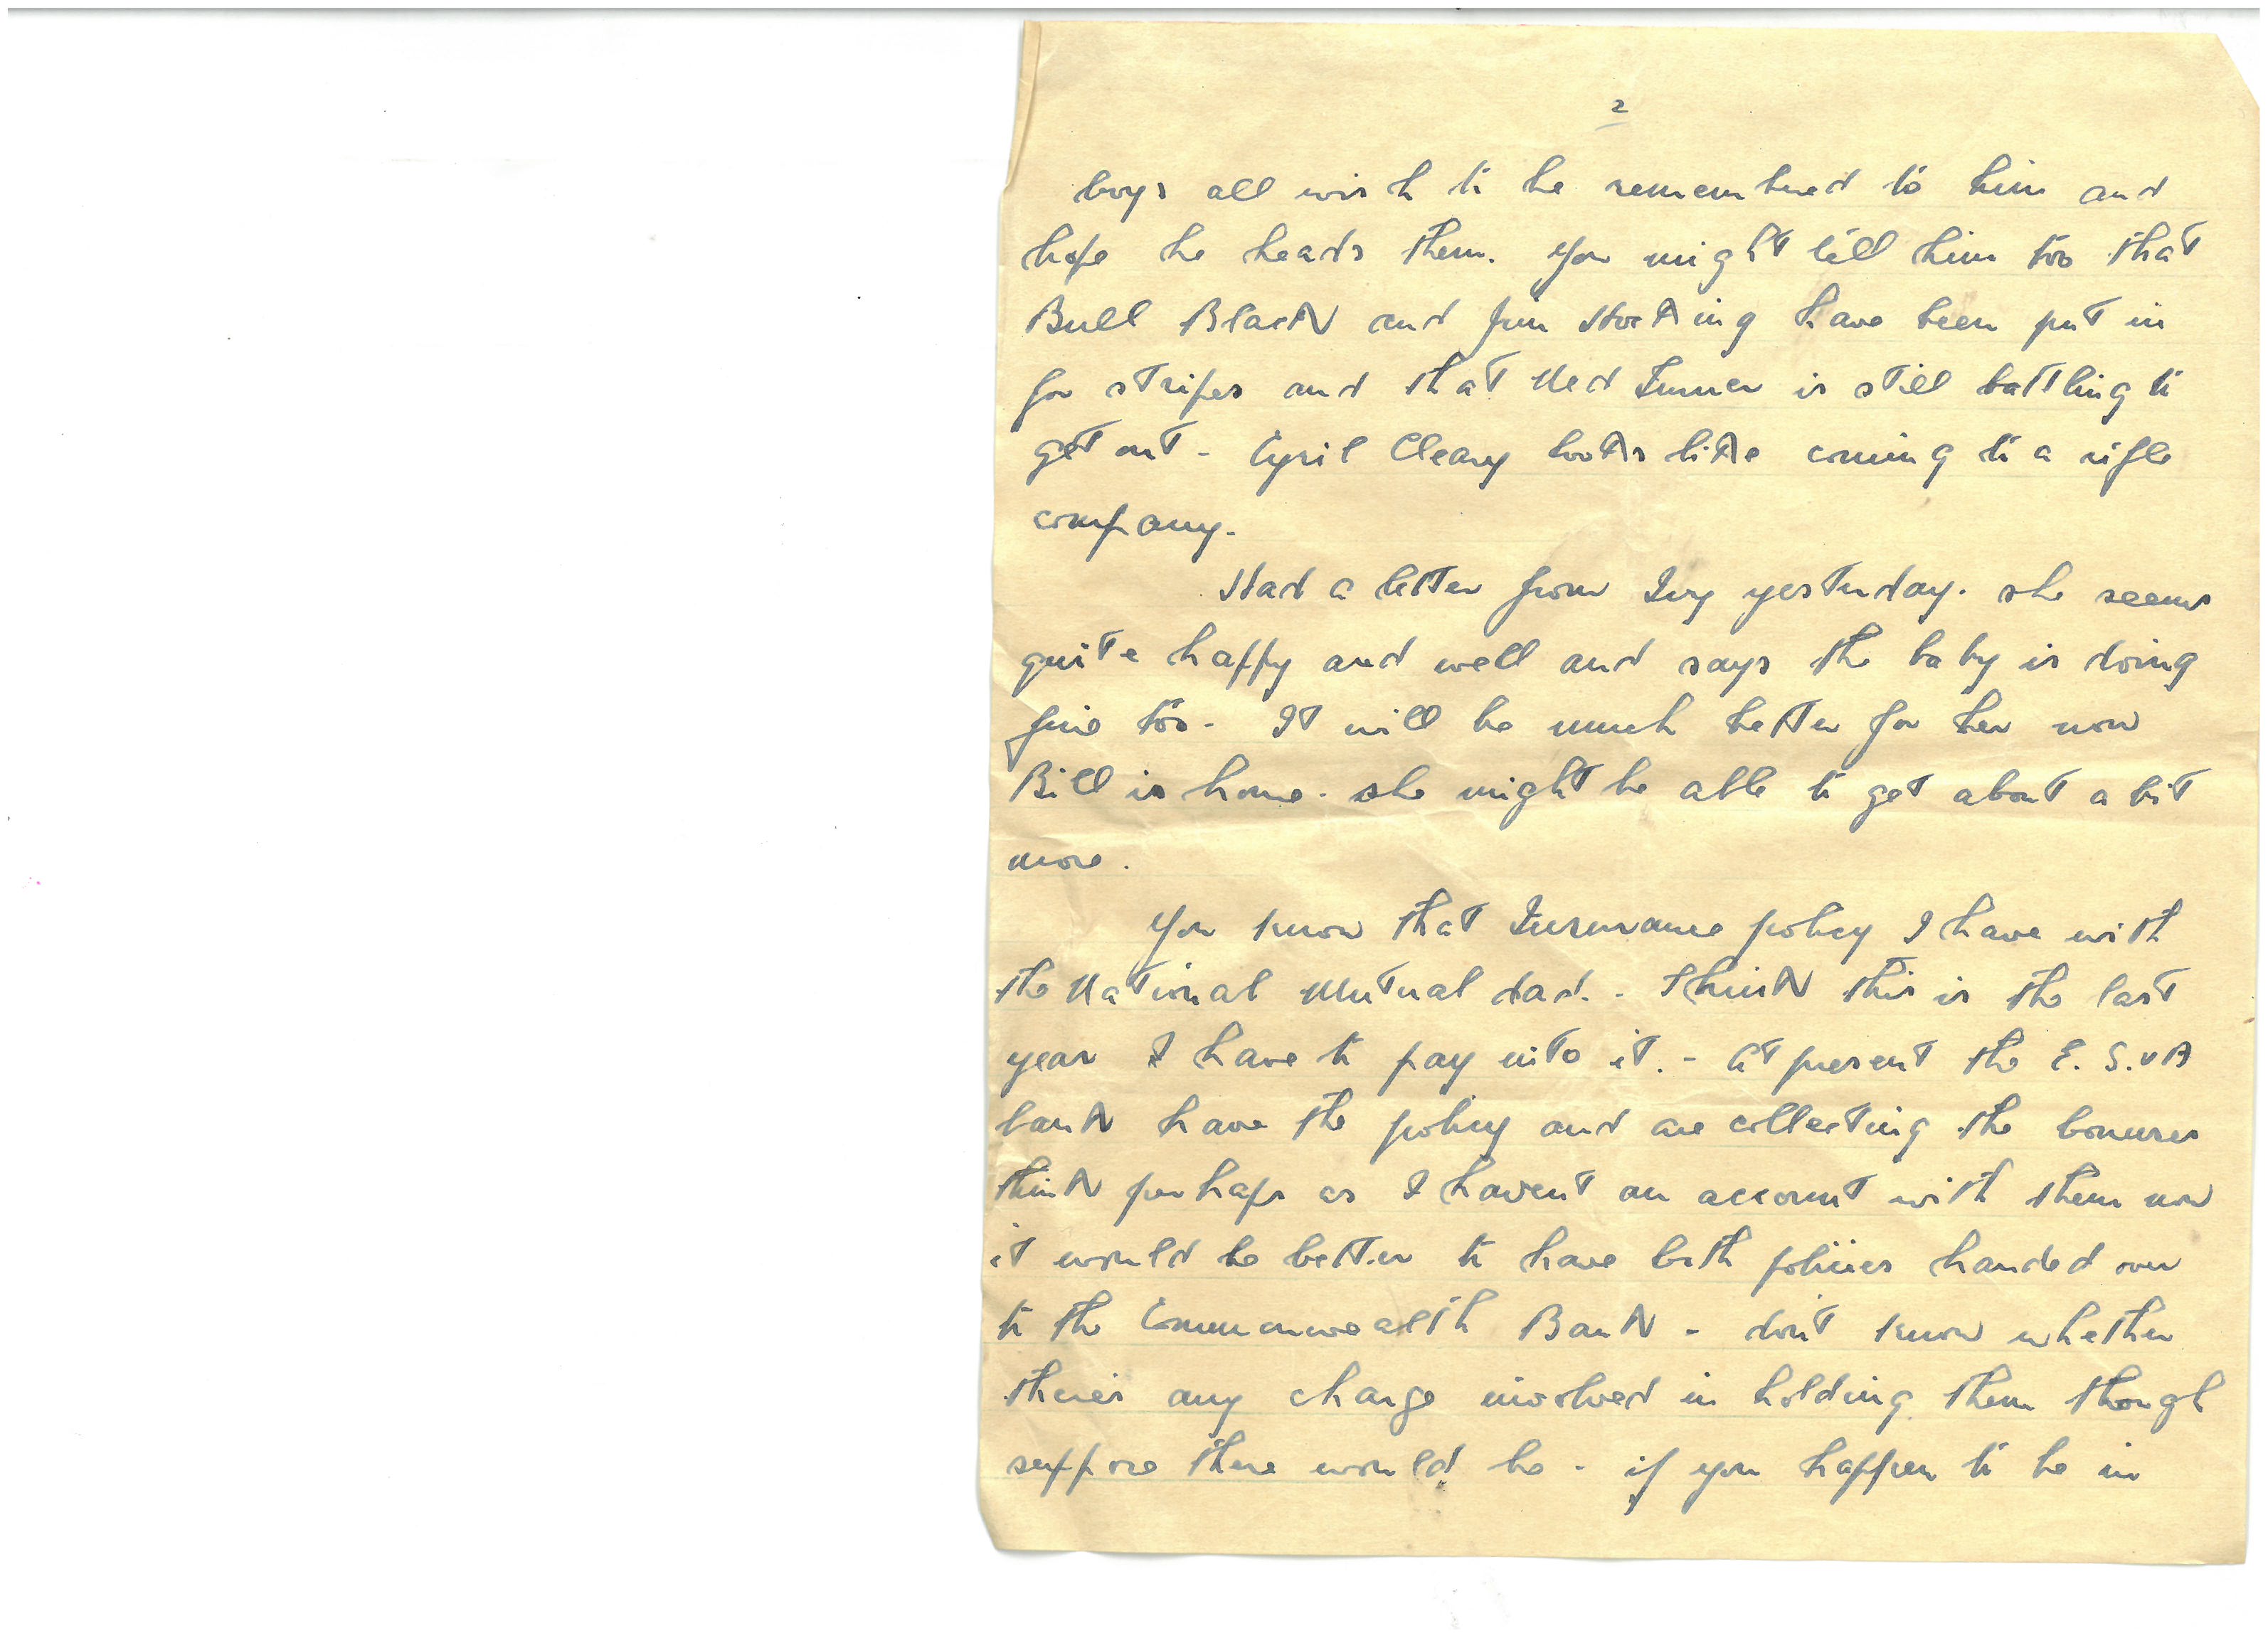 2
boys all wish to be remembered to him and
hope he heads them. You might tell him too that
Bull Black and Jim Hocking have been put in
for stripes and that Ned Turner is still battling to
get out - Cyril Cleary looks like coming to a rifle
company.
Had a letter from Ivy yesterday. she seems
quite happy and well and says the baby is doing
fine too - It will be much better for her now
Bill is home. she might be able to get about a bit
more.
You know that Insurance policy I have with
the National Mutual dad. - Think this is the last
year I have to pay into it. - At present the E. S. & A
bank have the policy and are collecting the bonuses
think perhaps as I havent an account with them now
it would be better to have both policies handed over
to the Commonwealth Bank - don't know whether
there's any charge involved in holding them though
suppose there would be - if you happen to be in